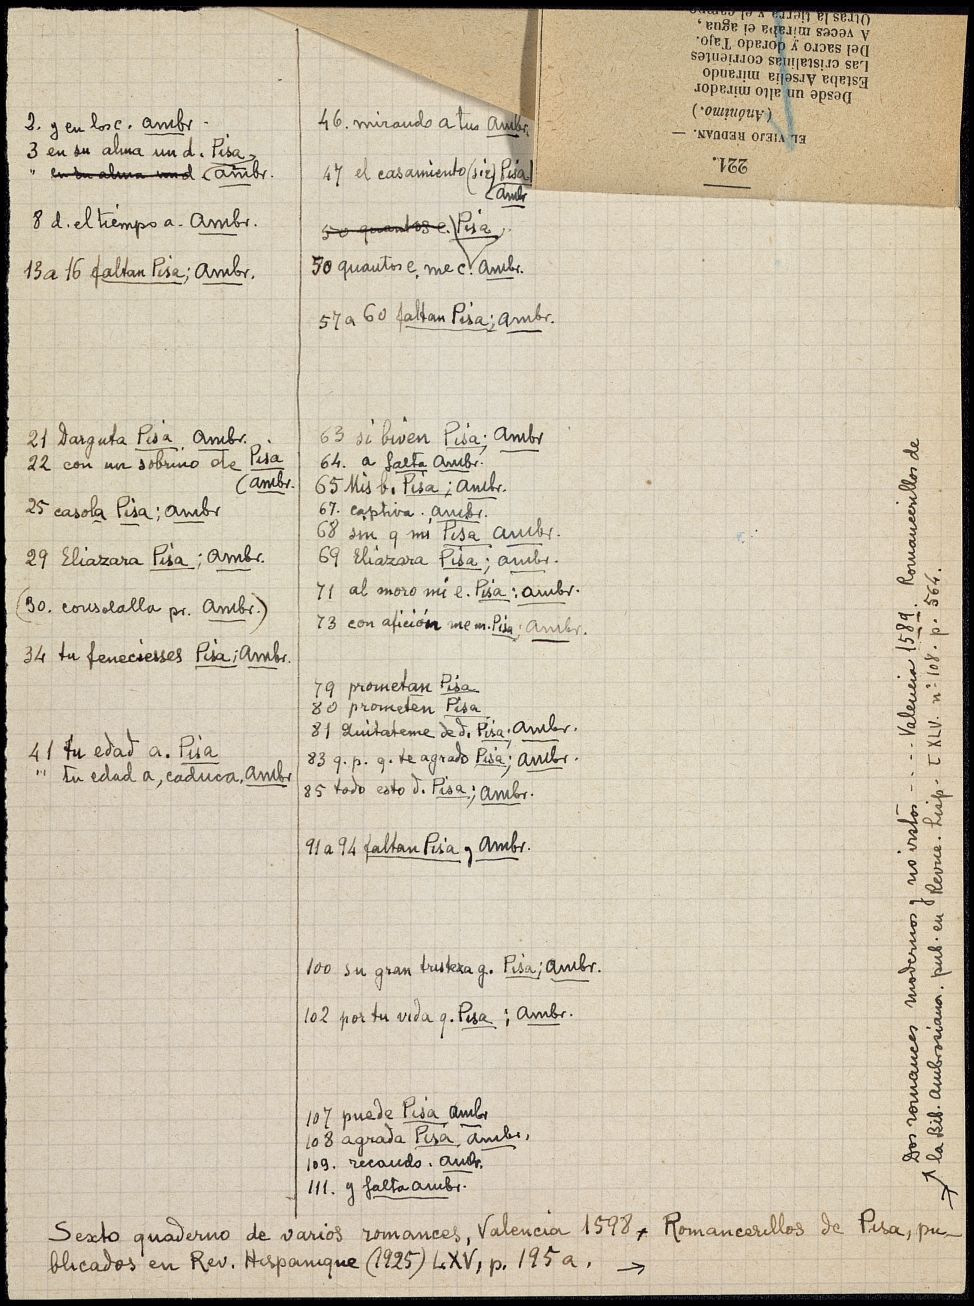 2. y en los c. Ambr.
3 en su alma un d. Pisa
" en su alma un d (Ambr.
8 d. el tiempo a. Ambr.
13 a 16 faltan Pisa; Ambr.
21 Darguta Pisa Ambr.
22 con un sobrino de Pisa
(Ambr.
25 casola Pisa; Ambr
29 Eliazara Pisa; Ambr.
(30. consolalla pr. Ambr.)
34 tu feneciesses Pisa; Ambr.
41 tu edad a. Pisa
" tu edad a, caduca, Ambr
46. mirando a tus Ambr.
47 el casamiento (sic) Pisa
(Ambr
50 quantos e. Pisa
50 quantos e, me c. Ambr.
57 a 60 faltan Pisa; Ambr.
63 si biven Pisa; Ambr
64. a falta Ambr.
65 Mis b. Pisa; Ambr.
67. captiva. Ambr.
68 sin q mi Pisa Ambr.
69 Eliazara Pisa; Ambr.
71 al moro mi e. Pisa; Ambr.
73 con afición me m. Pisa; Ambr.
79 prometan Pisa
80 prometen Pisa
81 Quitateme de d. Pisa; Ambr.
83 q. p. q. te agrado Pisa; Ambr.
85 todo esto d. Pisa; Ambr.
91 a 94 faltan Pisa y Ambr.
100 su gran tristeza g. Pisa; Ambr.
102 por tu vida q. Pisa; Ambr.
107 puede Pisa Ambr
108 agrada Pisa, Ambr.
109. recaudo. Ambr.
111. y falta Ambr.
Sexto quaderno de varios romances, Valencia 1598, Romancerillos de Pisa, pu-
blicados en Rev. Hispanique (1925) LXV, p. 195 a. →
Dos romances modernos y no vistos - - - - Valencia 1589. Romancerillos de
la Bib. Ambrosiana. pub. en Revue. hisp. t XLV. nº 108. p. 564.
221.
EL VIEJO REDUAN. —
(Anónimo.)
Desde un alto mirador
Estaba Arselia mirando
Las cristalinas corrientes
Del sacro y dorado Tajo.
A veces miraba el agua,
Otras la tierra y el campo